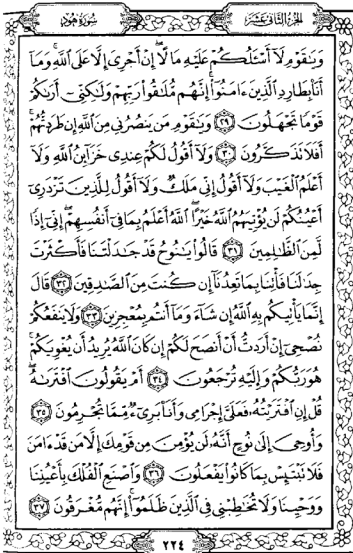 سورة هود
الجزء الثاني عشر
وَيَٰقَوْمِ لَآ أَسْـَٔلُكُمْ عَلَيْهِ مَالًا ۖ إِنْ أَجْرِىَ إِلَّا عَلَى ٱللَّهِ ۚ وَمَآ
أَنَا۠ بِطَارِدِ ٱلَّذِينَ ءَامَنُوٓا۟ ۚ إِنَّهُم مُّلَٰقُوا۟ رَبِّهِمْ وَلَٰكِنِّىٓ أَرَىٰكُمْ
قَوْمًا تَجْهَلُونَ ﴿٢٩﴾ وَيَٰقَوْمِ مَن يَنصُرُنِى مِنَ ٱللَّهِ إِن طَرَدتُّهُمْ ۚ
أَفَلَا تَذَكَّرُونَ ﴿٣٠﴾ وَلَآ أَقُولُ لَكُمْ عِندِى خَزَآئِنُ ٱللَّهِ وَلَآ
أَعْلَمُ ٱلْغَيْبَ وَلَآ أَقُولُ إِنِّى مَلَكٌ وَلَآ أَقُولُ لِلَّذِينَ تَزْدَرِىٓ
أَعْيُنُكُمْ لَن يُؤْتِيَهُمُ ٱللَّهُ خَيْرًا ۖ ٱللَّهُ أَعْلَمُ بِمَا فِىٓ أَنفُسِهِمْ ۖ إِنِّىٓ إِذًا
لَّمِنَ ٱلظَّٰلِمِينَ ﴿٣١﴾ قَالُوا۟ يَٰنُوحُ قَدْ جَٰدَلْتَنَا فَأَكْثَرْتَ
جِدَٰلَنَا فَأْتِنَا بِمَا تَعِدُنَآ إِن كُنتَ مِنَ ٱلصَّٰدِقِينَ ﴿٣٢﴾ قَالَ
إِنَّمَا يَأْتِيكُم بِهِ ٱللَّهُ إِن شَآءَ وَمَآ أَنتُم بِمُعْجِزِينَ ﴿٣٣﴾ وَلَا يَنفَعُكُمْ
نُصْحِىٓ إِنْ أَرَدتُّ أَنْ أَنصَحَ لَكُمْ إِن كَانَ ٱللَّهُ يُرِيدُ أَن يُغْوِيَكُمْ ۚ
هُوَ رَبُّكُمْ وَإِلَيْهِ تُرْجَعُونَ ﴿٣٤﴾ أَمْ يَقُولُونَ ٱفْتَرَىٰهُ ۖ
قُلْ إِنِ ٱفْتَرَيْتُهُۥ فَعَلَىَّ إِجْرَامِى وَأَنَا۠ بَرِىٓءٌ مِّمَّا تُجْرِمُونَ ﴿٣٥﴾
وَأُوحِىَ إِلَىٰ نُوحٍ أَنَّهُۥ لَن يُؤْمِنَ مِن قَوْمِكَ إِلَّا مَن قَدْ ءَامَنَ
فَلَا تَبْتَئِسْ بِمَا كَانُوا۟ يَفْعَلُونَ ﴿٣٦﴾ وَٱصْنَعِ ٱلْفُلْكَ بِأَعْيُنِنَا
وَوَحْيِنَا وَلَا تُخَٰطِبْنِى فِى ٱلَّذِينَ ظَلَمُوٓا۟ ۚ إِنَّهُم مُّغْرَقُونَ ﴿٣٧﴾
٢٢٤